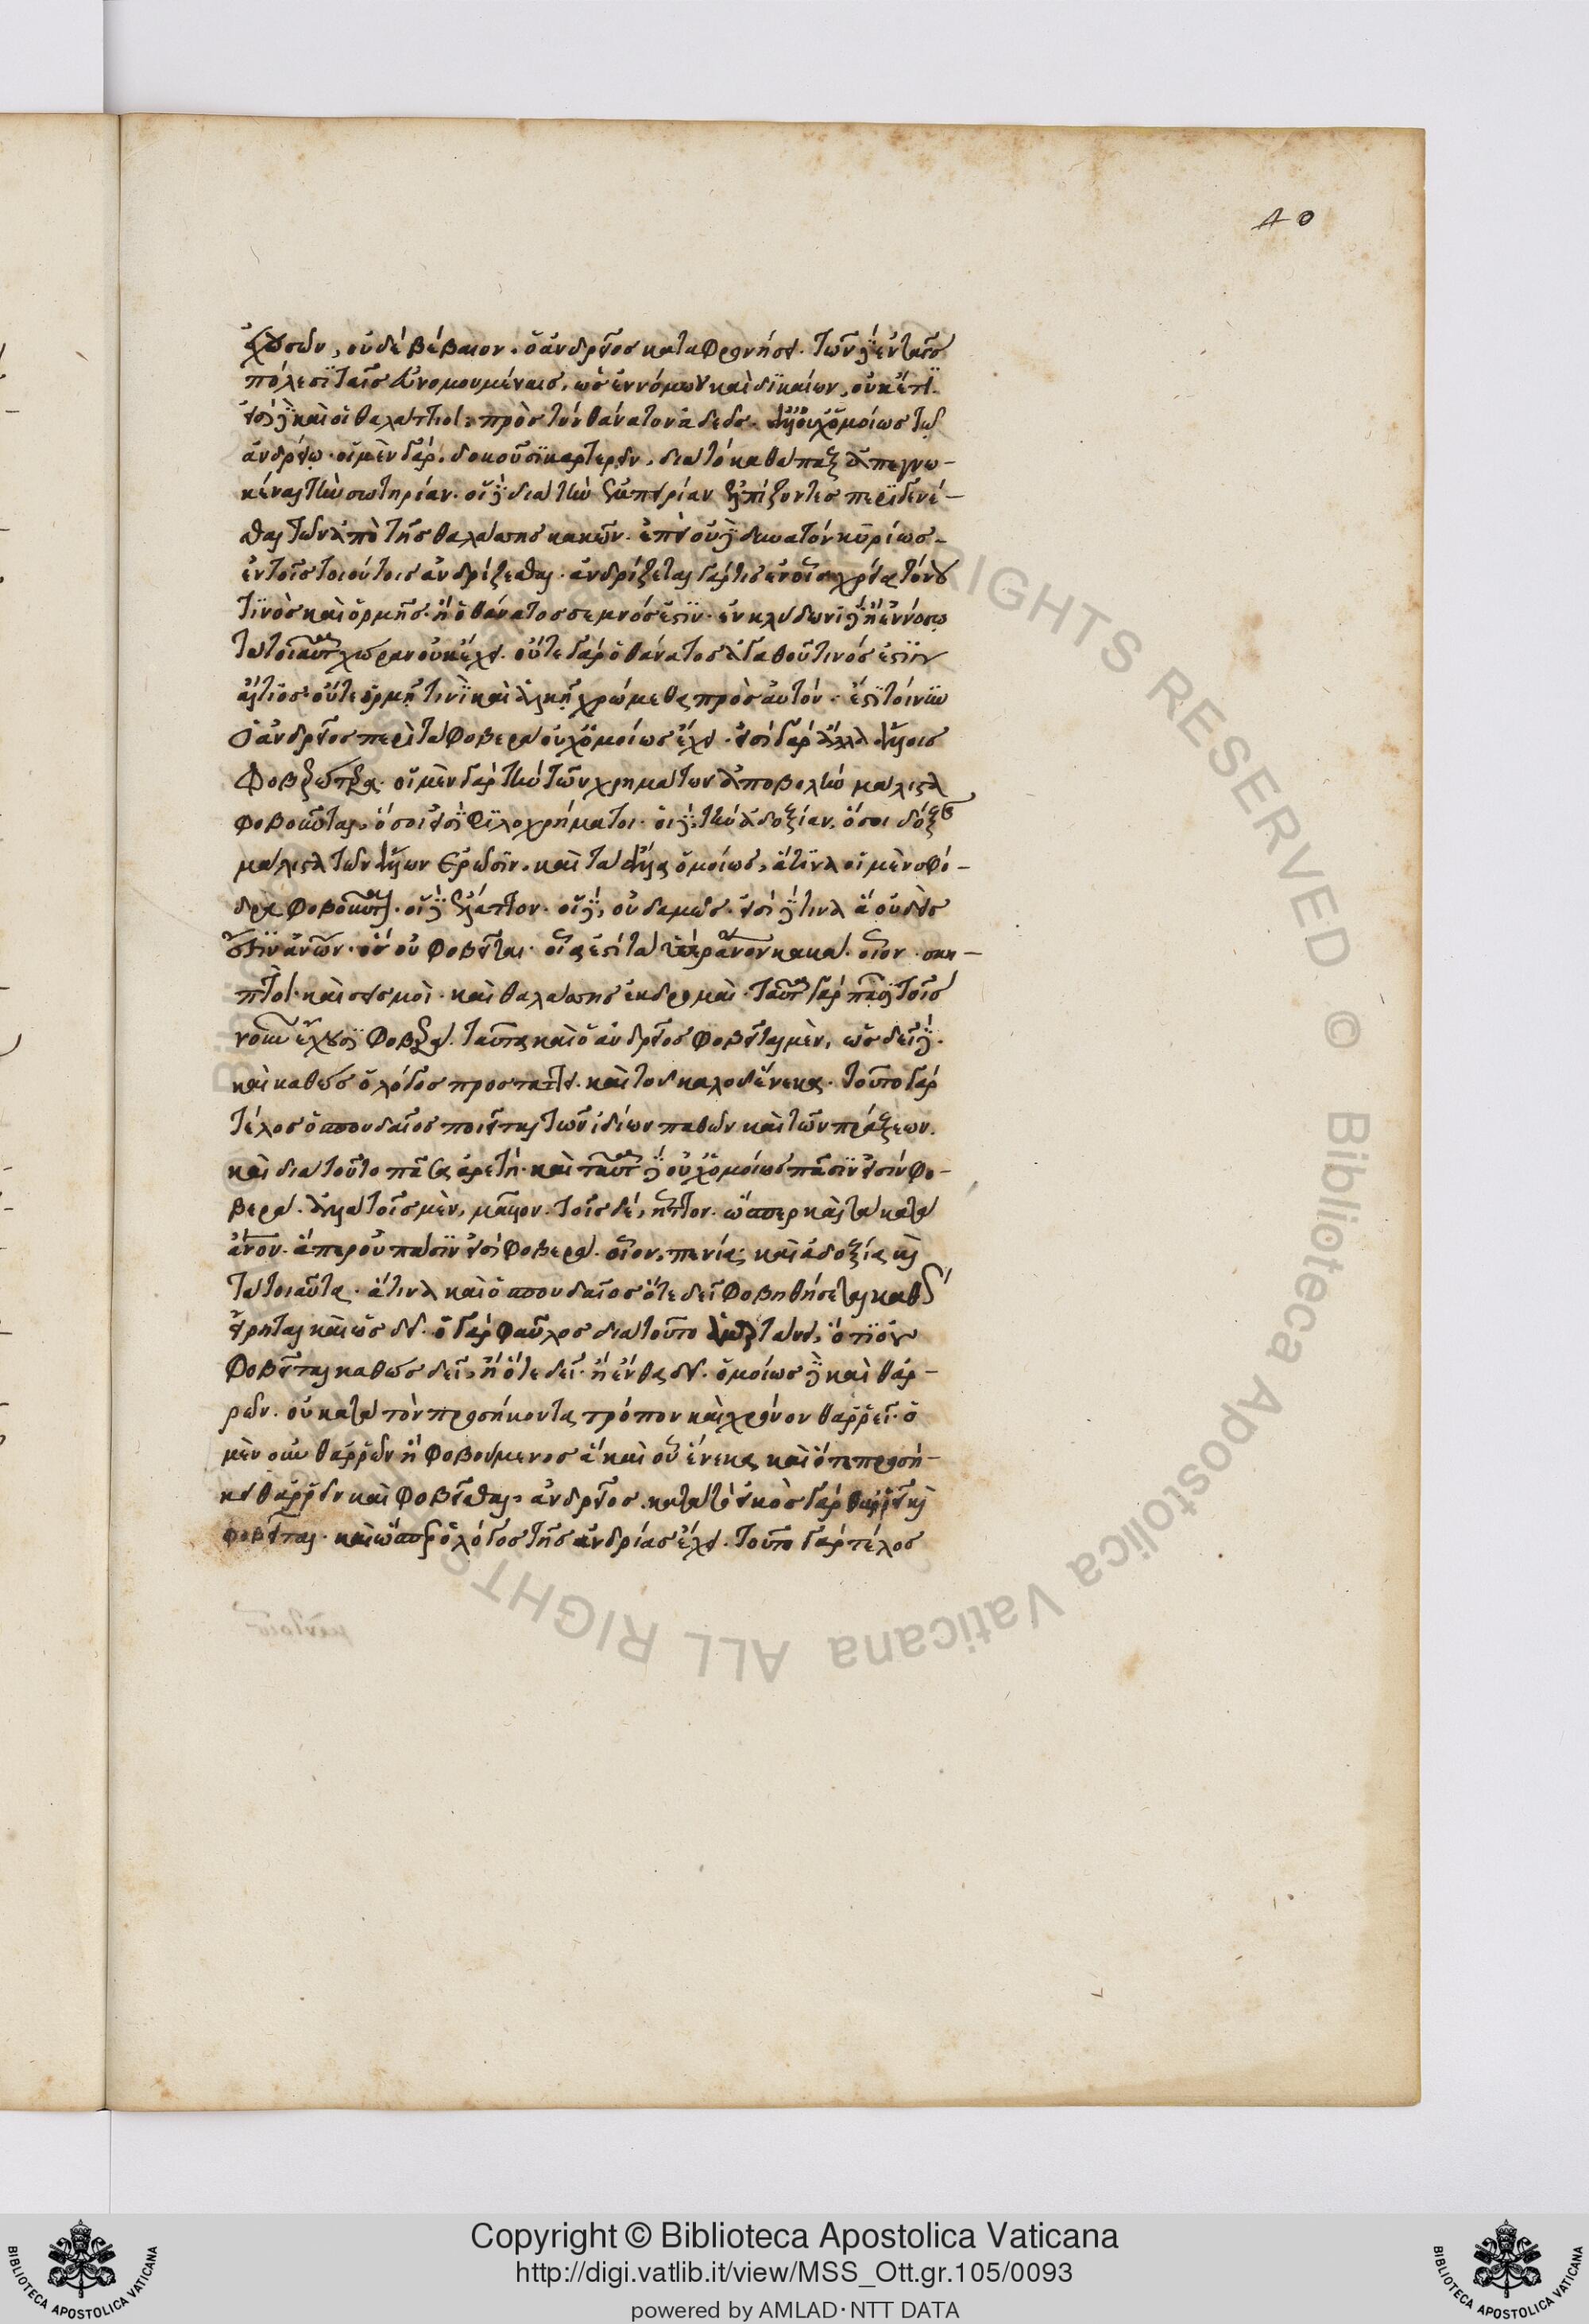 40
ἔχουσιν, οὐδὲ βέβαιον. ὁ ἀνδρεῖος καταφρονήσει. τῶν δὲ ἐν ταῖς
πόλεσι ταῖς εὐνομουμέναις, ὡς ἐννόμων καὶ δικαίων, οὐκέτι.
εἰσὶ δὲ καὶ οἱ θαλάττιοι πρὸς τὸν θάνατον ἀδεεῖς. ἀλλ' οὐχ ὁμοίως τῷ
ἀνδρείῳ. οἱ μὲν γὰρ, δοκοῦσι καρτερεῖν, διὰ τὸ καθάπαξ ἀπεγνω-
κέναι τὴν σωτηρίαν. οἱ δὲ διὰ τὴν ἐμπειρίαν ἐλπίζοντες περιγενέ-
σθαι τῶν ἀπὸ τῆς θαλάσσης κακῶν. ἐπεὶ οὐδὲ δυνατὸν κυρίως
ἐν τοῖς τοιούτοις ἀνδρίζεσθαι. ἀνδρίζεται γάρ τις ἐν οἷς χρεία πόνου
τινὸς καὶ ὁρμῆς. ἢ ὁ θάνατος σεμνός ἐστιν. ἐν κλύδωνι δὲ ἢ ἐν νόσῳ
τὰ τοιαῦτα χώραν οὐκ ἔχει. οὔτε γὰρ ὁ θάνατος ἀγαθοῦ τινός ἐστιν
αἴτιος οὔτε ὁρμῇ τινὶ καὶ ἀλκῇ χρώμεθα πρὸς αὐτόν. ἔτι τοίνυν
ὁ ἀνδρεῖος περὶ τὰ φοβερὰ οὐχ ὁμοίως ἔχει. εἰσὶ γὰρ ἄλλα ἄλλοις
φοβερώτερα. οἱ μὲν γὰρ τὴν τῶν χρημάτων ἀποβολὴν μάλιστα
φοβοῦνται, ὅσοι εἰσὶ φιλοχρήματοι. οἱ δὲ, τὴν ἀδοξίαν, ὅσοι δόξης
μάλιστα τῶν ἄλλων ἐρῶσιν. καὶ τὰ ἄλλα ὁμοίως, ἅτινα οἱ μὲν σφό-
δρα φοβοῦνται. οἱ δὲ ἔλαττον. οἱ δὲ, οὐδαμῶς. εἰσὶ δέ τινα ἃ οὐδείς
ἐστιν ἀνθρώπων. ὃς οὐ φοβεῖται. οἷά ἐστι τὰ ὑπὲρ ἄνθρωπον κακά. οἷον σκη-
πτοὶ. καὶ σεισμοὶ. καὶ θαλάσσης ἐκδρομαὶ. ταῦτα γὰρ πᾶσι τοῖς
νοῦν ἔχουσι φοβερά. ταῦτα καὶ ὁ ἀνδρεῖος φοβεῖται μὲν, ὡς δεῖ δέ.
καὶ καθὼς ὁ λόγος προστάττει. καὶ τοῦ καλοῦ ἕνεκα. τοῦτο γὰρ
τέλος ὁ σπουδαῖος ποιεῖται τῶν ἰδίων παθῶν καὶ τῶν πράξεων.
καὶ διὰ τοῦτο πᾶσα ἀρετή. καὶ ταῦτα δὲ οὐχ ὁμοίως πᾶσιν εἰσὶν φο-
βερά. ἀλλὰ τοῖς μὲν, μᾶλλον. τοῖς δέ, ἧττον. ὥσπερ καὶ τὰ κατὰ
ἄνθρωπον. ἅπερ οὐ πᾶσιν εἰσὶ φοβερά. οἷον, πενία, καὶ ἀδοξία καὶ
τὰ τοιαῦτα. ἅτινα καὶ ὁ σπουδαῖος ὅτε δεῖ φοβηθήσεται καθὰ
εἴρηται καὶ ὡς δεῖ. ὁ γὰρ φαῦλος διὰ τοῦτο ἁμαρτάνει, ὅτι οὐ
φοβεῖται καθὼς δεῖ, ἢ ὅτε δεῖ. ἢ ἔνθα δεῖ. ὁμοίως δὲ καὶ θαρ-
ρῶν. οὐ κατὰ τὸν προσήκοντα τρόπον καὶ χρόνον θαρρεῖ. ὁ
μὲν οὖν θαρρῶν ἢ φοβούμενος ἃ καὶ οὗ ἕνεκα καὶ ὅτε προσή-
κει θαρρεῖν καὶ φοβεῖσθαι, ἀνδρεῖος. κατὰ τὸ εἰκὸς γὰρ θαρρεῖ καὶ
φοβεῖται. καὶ ὥσπερ ὁ λόγος τῆς ἀνδρίας ἔχει. τοῦτο γὰρ τέλος
Copyright © Biblioteca Apostolica Vaticana
http://digi.vatlib.it/view/MSS_Ott.gr.105/0093
powered by AMLAD·NTT DATA
BIBLIOTECA APOSTOLICA VATICANA
BIBLIOTECA APOSTOLICA VATICANA
© Biblioteca Apostolica Vaticana ALL RIGHTS RESERVED